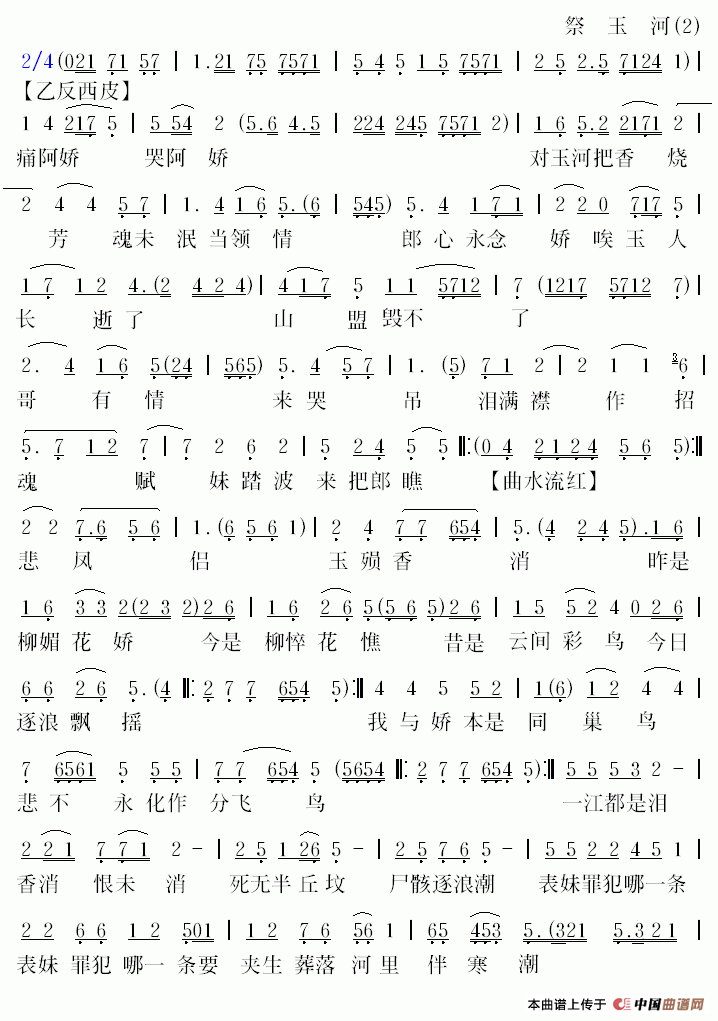 祭 玉 河(2)
2/4(021 71 57 | 1.21 75 757571 | 5 4 5 1 5 7571 | 2 5 2.5 7124 1)|
【乙反西皮】
1 4 217 5 | 5 54 2 (5.6 4.5 | 224 245 7571 2)| 1 6 5.2 2171 2
痛阿娇 哭阿 娇 对玉河把香 烧
2 4 4 5 7 | 1. 4 1 6 5.(6 | 545) 5. 4 1 71 | 2 2 0 717 5
芳 魂未 泯 当领 情 郎 心 永念 娇 唉 玉 人
1 7 1 2 4.(2 4 2 4)| 4 1 7 5 1 1 5712 | 7 (1217 5712 7)
长 逝了 山 盟 毁不 了
2. 4 1 6 5(24 | 565) 5. 4 5 7 | 1. (5) 7 1 2 | 2 1 1 3 6
哥 有 情 来 哭 吊 泪满 襟 作 招
5. 7 1 2 7 | 7 2 6 2 | 5 2 4 5 5 (0 4 2124 5 6 5)
魂 赋 妹 踏 波 来 把郎 瞧 【曲水流红】
2 2 7.6 5 6 | 1.(6 5 6 1)| 2 4 7 7 654 | 5.(4 2 4 5).1 6
悲 凤 侣 玉 殒 香 消 昨是
1 6 3 3 2(2 3 2)2 6 | 1 6 2 6 5(5 6 5)2 6 | 1 5 5 2 4 0 2 6
柳媚 花 娇 今是 柳悴 花 憔 昔是 云间 彩 鸟 今日
6 6 2 6 5.(4 2 7 7 654 5) 4 4 5 5 2 | 1(6) 1 2 4 4
逐浪 飘 摇 我 与 娇 本是 同 巢 鸟
7 6561 5 5 5 | 7 7 654 5 (5654 2 7 7 654 5) 5 5 5 3 2 -
悲 不 永 化作 分飞 鸟 一江都是泪
2 2 1 7 7 1 2 - | 2 5 1 26 5 - | 2 5 7 6 5 - | 5 5 2 2 4 5 1
香消 恨未 消 死无半 丘 坟 尸骸逐浪潮 表妹罪犯哪一条
2 2 6 6 1 2 501 | 1 2 7 6 56 1 | 65 453 5.(321 5.321
表妹 罪犯 哪一 条要 夹生 葬落 河 里 伴 寒 潮
本曲谱上传于 中国曲谱网